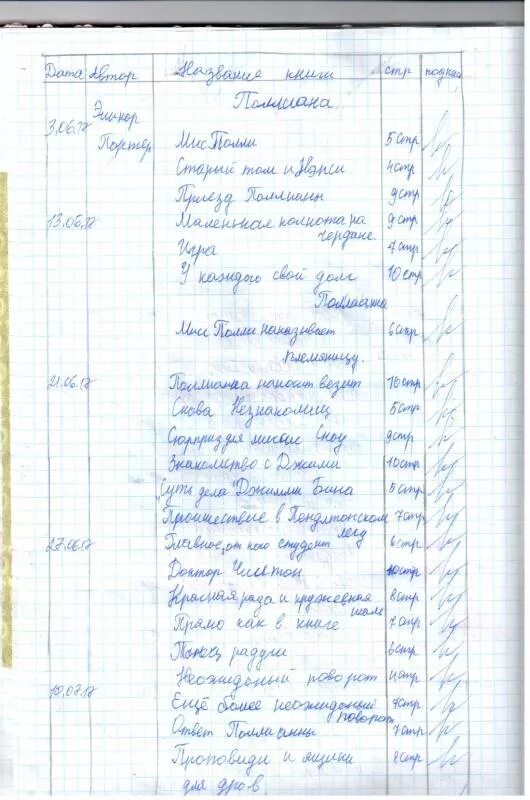 Дата Автор Название книги стр подпись
Поллиана
3.06.17 Элинор
Портер Мис Полли 5 стр
Старый том и Нэнси 4 стр
Приезд Поллианы 9 стр
13.06.17 Маленькая комнота на 9 стр
чердаке.
Игра 7 стр
У каждого свой долг 10 стр
Поллианна
Мисс Полли наказывает 6 стр
племяницу.
21.06.17 Поллианна наносит визит 10 стр
Снова Незнакомиц 5 стр
Сюрприз для мисис Сноу 9 стр
Знакомство с Джимми 10 стр
Суть дела Джимми Бина 5 стр
Происшествие в Пендлтонском 7 стр
лесу
27.06.17 Главное, от кого студент 6 стр
Доктор Чилтон 10 стр
Красная роза и кружевная 8 стр
шаль
Прямо как в книге 7 стр
Танец радуги 6 стр
Неожиданый поворот 4 стр
10.07.17 Ещё более неожиданый 9 стр
поворот
Ответ Поллианны 7 стр
Проповиди и ящики 8 стр
для дров.